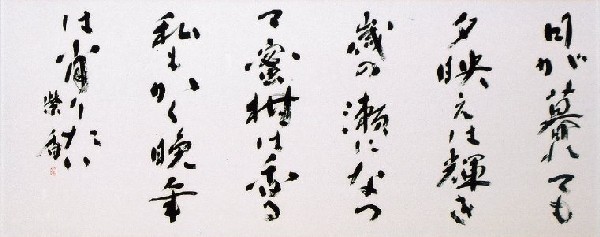 日が暮れても
夕映えは輝き
歳の瀬になつ
て蜜柑は香る
私もかく晩年
は有りたい
栄香